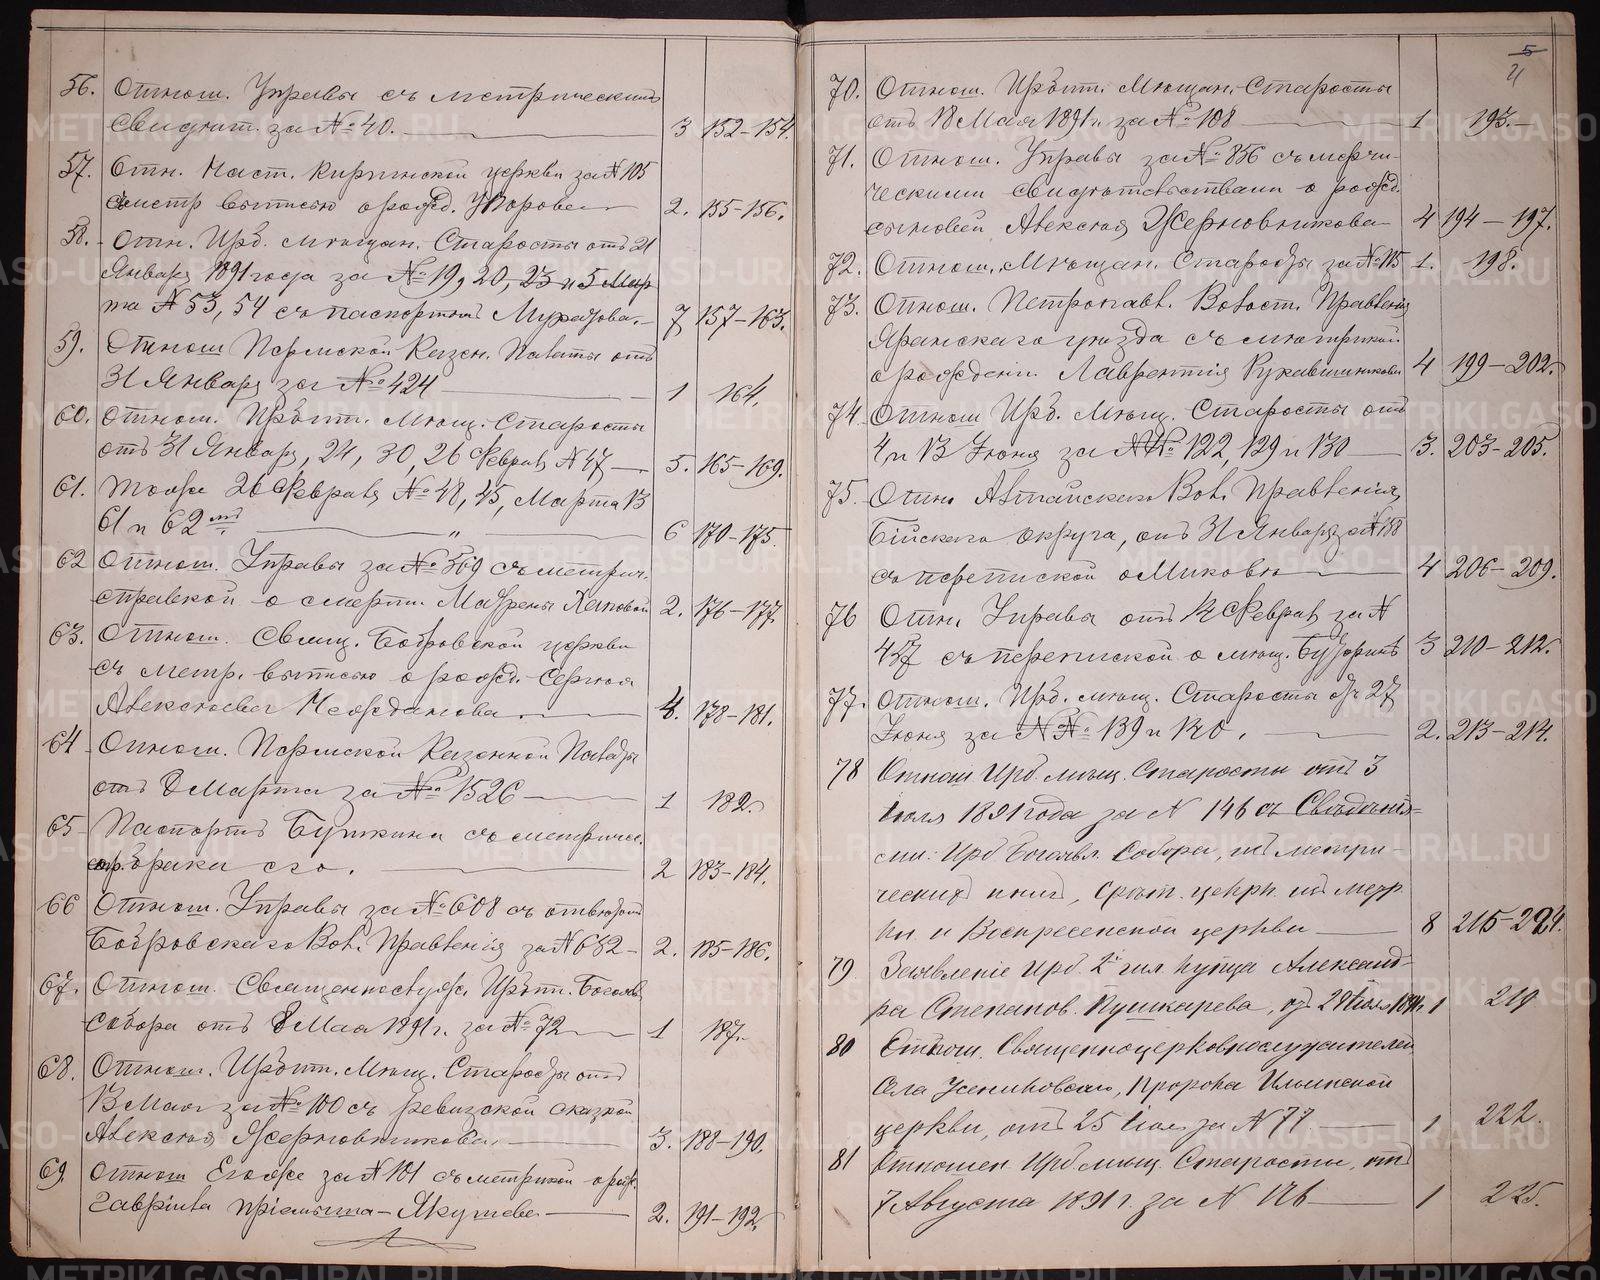 56. Отнош. Управы съ метрическимъ
Свидѣт. за № 40. 3 152-154.
57. Отн. Наст. Киргинской церкви за № 105
съ метр выписью о рожд. 2. 155-156.
58. Отн. Ирб. мѣщан. Старосты отъ 21
Января 1891 года за № 19, 20, 23 и 5 Мар
та № 53, 54 съ паспортомъ Муратова. 7 157-163.
59. Отнош Пермской Казен. Палаты отъ
31 Января за № 424 1 164.
60. Отнош. Ирбит. Мѣщ. Старосты
отъ 31 Января, 24, 30, 26 Февраля № 47 5. 165-169.
61. Тоже 26 Февраля № 48, 45, Марта 13
61 и 62 " 6 170-175
62 Отнош. Управы за № 369 съ метрич.
справкой о смерти Мавры 2. 176-177.
63. Отнош. Свящ. Бобровской церкви
съ метр. выписью о рожд. Сергѣя
Алексѣева 4. 178-181.
64 Отнош. Пермской Казенной Палаты
отъ 8 Марта за № 1526 1 182.
65 Паспортъ Бушкина съ метричес.
его. 2 183-184.
66 Отнош. Управы за № 608 съ отвѣтомъ
Бобровскаго Вол. Правленія за № 652 2. 185-186.
67. Отнош. Священнослуж. Ирбит. Богояв
собора отъ 8 Мая 1891 г. за № 72 1 187.
68. Отнош. Ирбит. Мѣщ. Старосты отъ
13 Мая за № 100 съ ревизской сказкой
Алексѣя Жерновникова. 3. 188-190.
69. Отнош Егоже за № 101 съ метрикой о рож.
Гавріила пріемыша - Якушева 2. 191-192.
5
4
70. Отнош. Ирбит. Мѣщан. Старосты
отъ 18 Мая 1891 г. за № 108 1 193.
71. Отнош. Управы за № 856 съ метри-
ческими свидѣтельствами о рожд.
сыновей Алексѣя Жерновникова 4 194 - 197.
72. Отнош. Мѣщан. Старосты за № 115 1. 198.
73. Отнош. Петропавл. Волост. Правленія
Яранскаго уѣзда съ метрикой
о рожденіи Лаврентія Рукавишникова 4 199-202.
74 Отнош Ирб. Мѣщ. Старосты отъ
4 и 13 Іюня за № 122, 129 и 130 3. 203-205.
75. Отнш Алтайскаго Вол. Правленія,
Бійскаго округа, отъ 31 Января за № 188
съ перепиской о 4 206-209.
76 Отнш. Управы отъ 14 Февраля за №
427 съ перепиской о мѣщ. 3 210-212.
77. Отнош. Ирб. мѣщ. Старосты отъ 27
Іюня за № № 139 и 140. 2. 213-214.
78 Отнош Ирб. мѣщ. Старосты отъ 3
Іюля 1891 года за № 146 съ Свѣдѣнія-
ми: Ирб Богоявл. Собора, изъ метри-
ческихъ книгъ, Срѣт. церкви изъ метр.
кн. и Воскресенской церкви 8 215-224.
79 Заявленіе Ирб. 2й гил купца Александ-
ра Степанов. Пушкарева, отъ 29 Іюля 1891 г. 1 219
80 Отнош. Священноцерковнослужителей
Села Усениновскаго, Пророка Ильинской
церкви, отъ 25 Іюля за № 77 1 222.
81 Отношен. Ирб. мѣщ. Старосты, отъ
7 Августа 1891 г. за № 176 1 225.